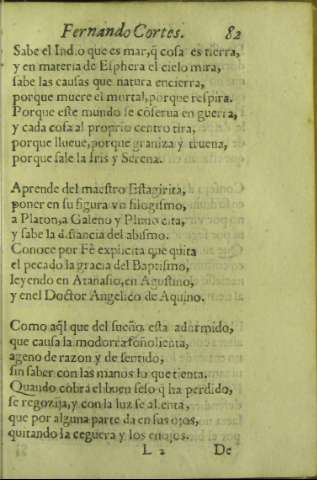 Fernando Cortes. 82
Sabe el Indio que es mar, q̃ cosa es tierra,
y en materia de Esphera el cielo mira,
sabe las causas que natura encierra,
porque muere el mortal, porque respira.
Porque este mundo se cõserua en guerra,
y cada cosa al proprio centro tira,
porque llueue, porque graniza y truena,
porque sale la Iris y Serena.
Aprende del maestro Estagirita,
poner en su figura vn silogismo,
a Platon, a Galeno y Plinio cita,
y sabe la distancia del abismo.
Conoce por Fê explicita que quita
el pecado la gracia del Baptismo,
leyendo en Atanasio, en Agustino,
y en el Doctor Angelico de Aquino.
Como aq̃l que del sueño esta adormido,
que causa la modorra soñolienta,
ageno de razon y de sentido,
sin saber con las manos lo que tienta.
Quando cobra el buen seso q̃ ha perdido,
se regozija, y con la luz se alienta,
que por alguna parte da en sus ojos,
quitando la ceguera y los enojos.
L 2 De